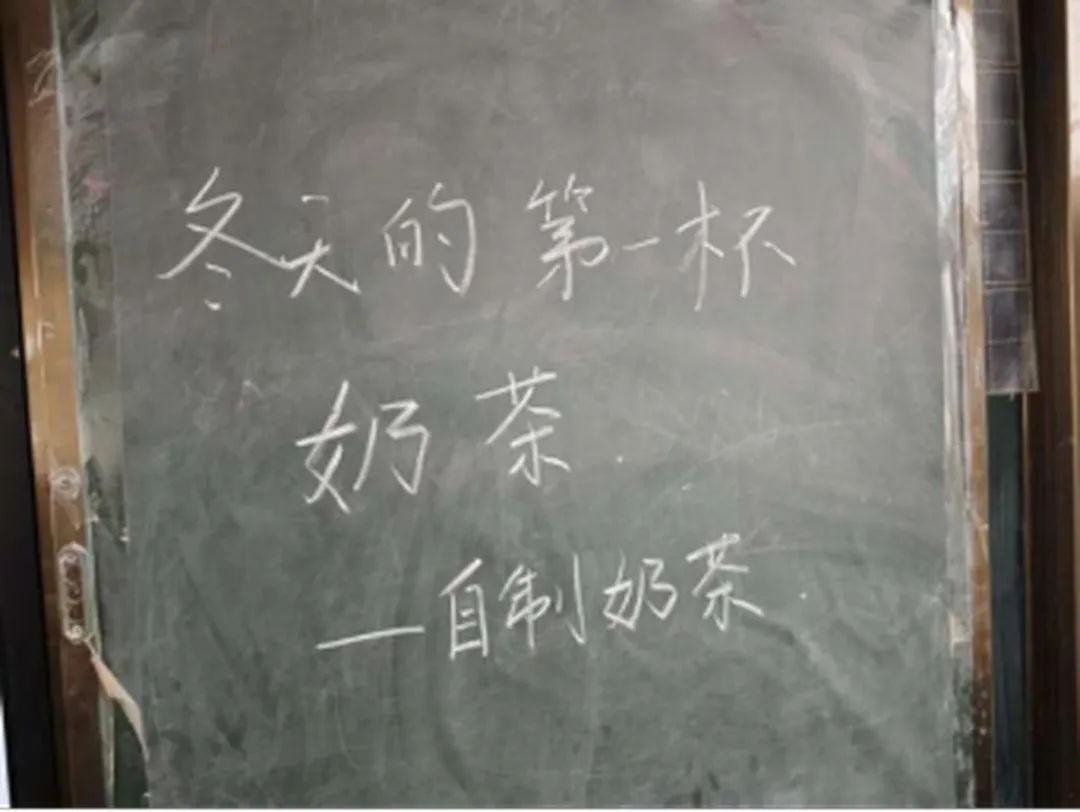 冬天的第一杯
奶茶.
—自制奶茶.